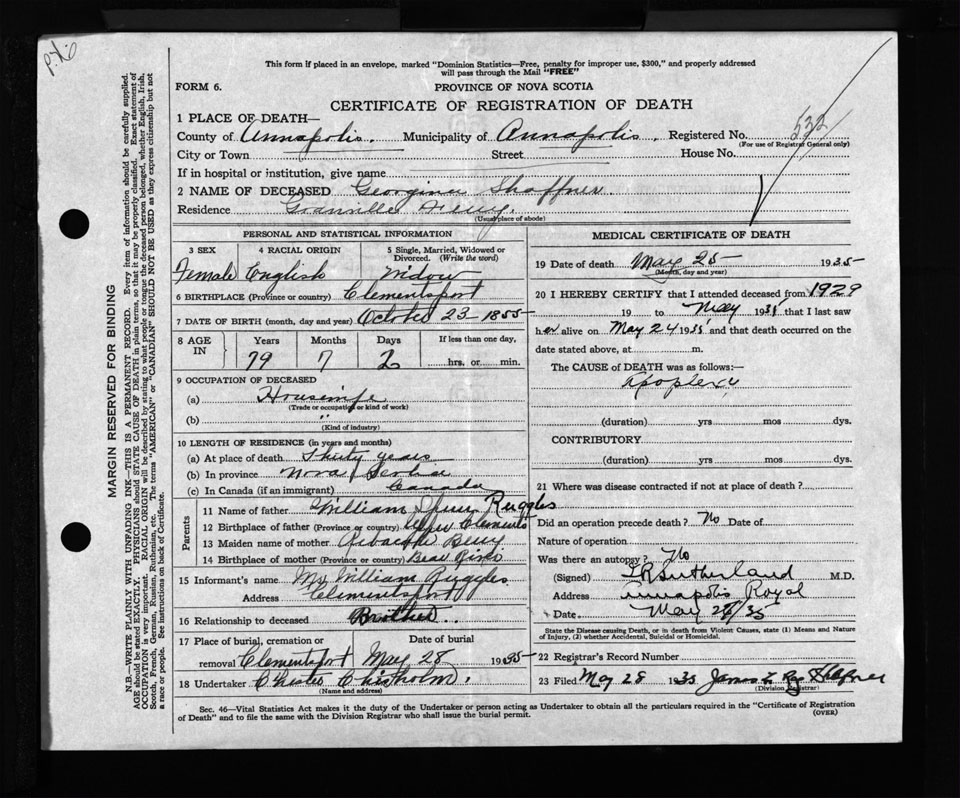 This form if placed in an envelope, marked "Dominion Statistics—Free, penalty for improper use, $300," and properly addressed
will pass through the Mail "FREE"
FORM 6.
PROVINCE OF NOVA SCOTIA
CERTIFICATE OF REGISTRATION OF DEATH
532
1 PLACE OF DEATH—
County of Annapolis. Municipality of Annapolis. Registered No.
(For use of Registrar General only)
City or Town Street House No.
If in hospital or institution, give name
2 NAME OF DECEASED Georgina Shaffner
Residence Granville Ferry.
(Usual place of abode)
PERSONAL AND STATISTICAL INFORMATION
3 SEX 4 RACIAL ORIGIN 5 Single, Married, Widowed or
Divorced. (Write the word)
Female English Widow
6 BIRTHPLACE (Province or country) Clementsport
7 DATE OF BIRTH (month, day and year) October 23-1855-
8 AGE IN Years Months Days If less than one day,
79 7 2 hrs. or min.
9 OCCUPATION OF DECEASED
(a) Housewife
(Trade or occupation or kind of work)
(b) "
(Kind of industry)
10 LENGTH OF RESIDENCE (in years and months)
(a) At place of death Thirty years
(b) In province Nova Scotia
(c) In Canada (if an immigrant) Canada
Parents
11 Name of father William Spurr Ruggles
12 Birthplace of father (Province or country) Upper Clements
13 Maiden name of mother Berry
14 Birthplace of mother (Province or Country) Bear River
15 Informant's name William Ruggles
Address Clementsport
16 Relationship to deceased Brother
17 Place of burial, cremation or Date of burial
removal Clementsport May 28 1935
18 Undertaker Chester Chisholm.
(Name and address)
MEDICAL CERTIFICATE OF DEATH
19 Date of death May 25- 1935-
(Month, day and year)
20 I HEREBY CERTIFY that I attended deceased from 1929
19 to May 1935 that I last saw
her alive on May 24 1935 and that death occurred on the
date stated above, at m.
The CAUSE of DEATH was as follows:—
Apoplexy
(duration) yrs mos dys.
CONTRIBUTORY
(duration) yrs mos dys.
21 Where was disease contracted if not at place of death?
Did an operation precede death? No Date of
Nature of operation
Was there an autopsy? No
(Signed) Sutherland M.D.
Address Annapolis Royal
Date May 28/35
State the Disease causing Death, or in death from Violent Causes, state (1) Means and Nature
of Injury, (2) whether Accidental, Suicidal or Homicidal.
22 Registrar's Record Number
23 Filed May 28 1935 Shaffner
(Division Registrar)
Sec. 46—Vital Statistics Act makes it the duty of the Undertaker or person acting as Undertaker to obtain all the particulars required in the "Certificate of Registration
of Death" and to file the same with the Division Registrar who shall issue the burial permit.
(OVER)
MARGIN RESERVED FOR BINDING
N.B.—WRITE PLAINLY WITH UNFADING INK—THIS IS A PERMANENT RECORD. Every item of information should be carefully supplied.
AGE should be stated EXACTLY. PHYSICIANS should STATE CAUSE OF DEATH in plain terms, so that it may be properly classified. Exact statement of
OCCUPATION is very important. RACIAL ORIGIN will be described by stating to what people or tongue the deceased person belonged, whether English, Irish,
Scotch, French, German, Russian, Ruthenian, etc. The terms "AMERICAN" or "CANADIAN" SHOULD NOT BE USED as they express citizenship but not
a race or people. See instructions on back of Certificate.